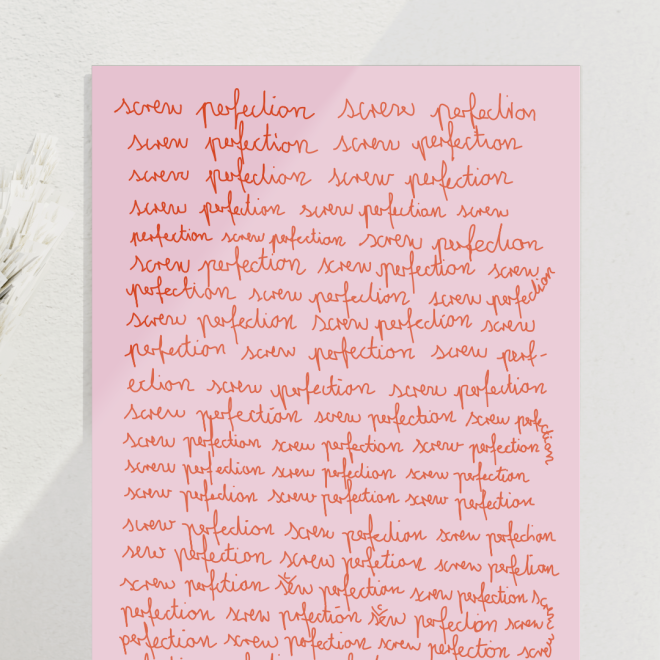 screw perfection screw perfection
screw perfection screw perfection
screw perfection screw perfection
screw perfection screw perfection screw
perfection screw perfection screw perfection
screw perfection screw perfection screw
perfection screw perfection screw perfection
screw perfection screw perfection screw
perfection screw perfection screw perf-
ection screw perfection screw perfection
screw perfection screw perfection screw perfection
screw perfection screw perfection screw perfection
screw perfection screw perfection screw perfection
screw perfection screw perfection screw perfection
screw perfection screw perfection screw perfection
srew perfection screw perfetion screw perfetion
screw perfction perfection screw perfection screw
perfection screw prfection perfection screw
perfection screw perfection screw perfection screw